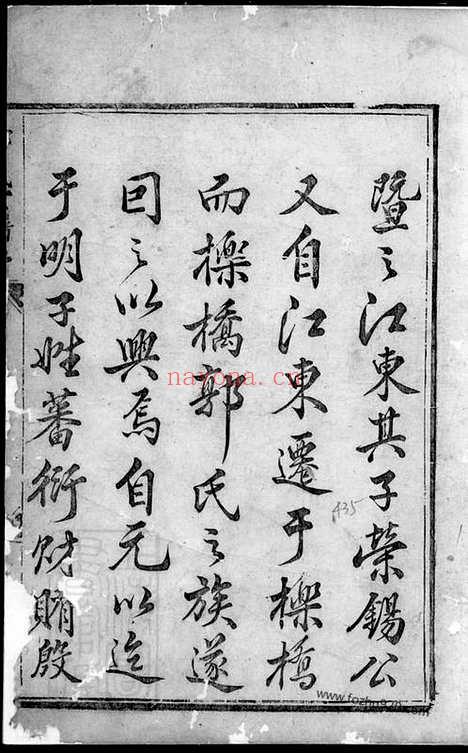 暨之江東其子榮錫公
又自江東遷于櫟橋
而櫟橋郭氏之族遂
因之以興焉自元以迄
于明子姓蕃衍財賄殷
nayona.cn
A35